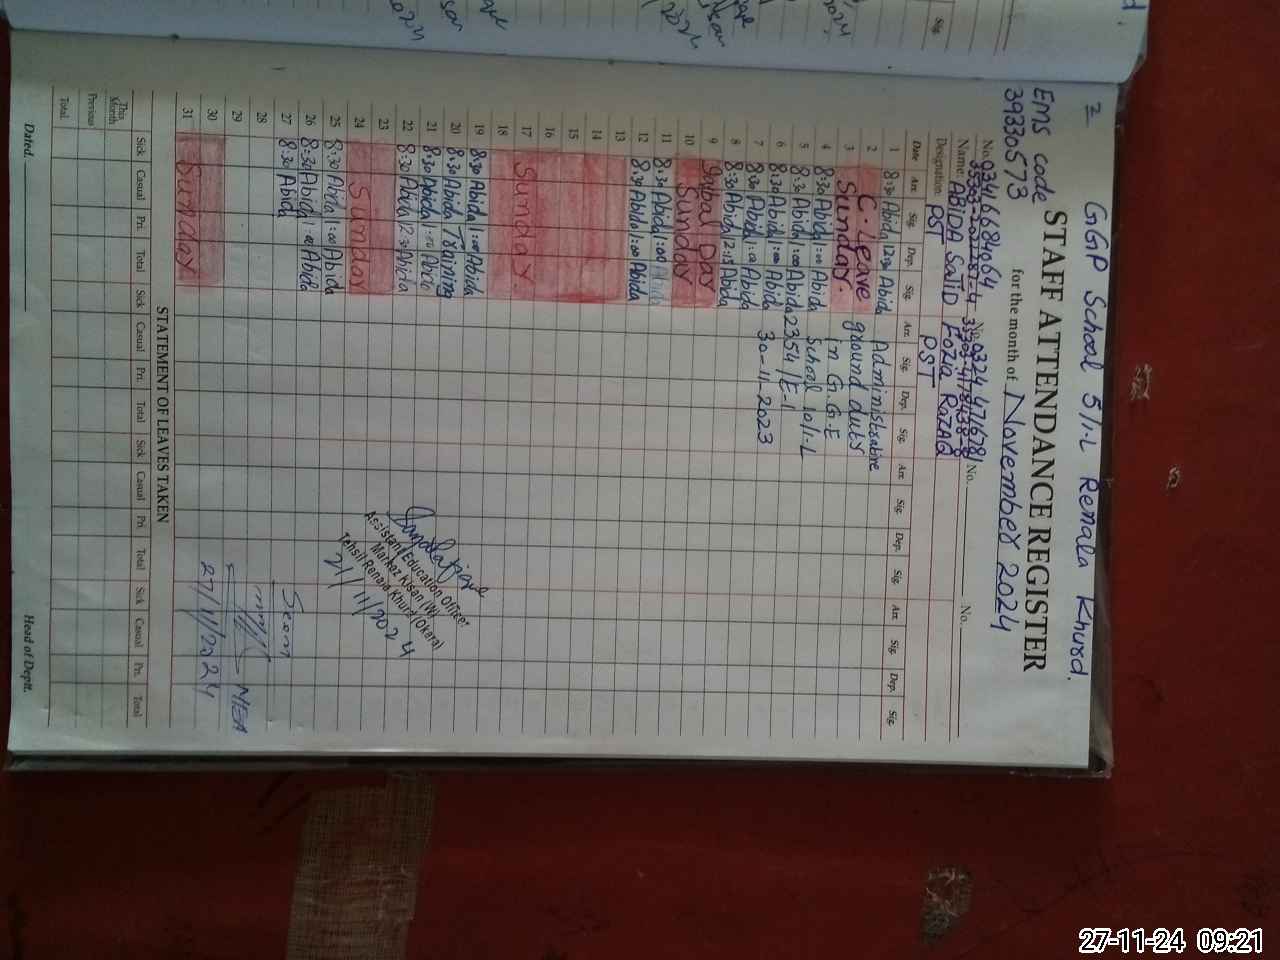 GGP School 5/1-L Renala Khurd.
EMS code
39330573
STAFF ATTENDANCE REGISTER
for the month of November 2024
No. 03466684064 No. 03244716781 No. No.
Name: ABIDA SAJID FOZIA RAZAQ
Designation PST PST
Date Arr. Sig. Dep. Sig. Arr. Sig. Dep. Sig. Arr. Sig. Dep. Sig. Arr. Sig. Dep. Sig.
1 8:30 Abida 12:30 Abida Administrative
2 C. Leave ground duty
3 Sunday in G.G.E
4 8:30 Abida 1:00 Abida School 10/1-L
5 8:30 Abida 1:00 Abida 2354/E-1
6 8:30 Abida 1:00 Abida 30-11-2023
7 8:30 Abida 1:00 Abida
8 8:30 Abida 12:15 Abida
9 Iqbal Day
10 Sunday
11 8:30 Abida 1:00 Abida
12 8:30 Abida 1:00 Abida
13
14
15
16
17 Sunday.
18
19 8:30 Abida 1:00 Abida
20 8:30 Abida Training
21 8:30 Abida 1:00 Abida
22 8:30 Abida 12:30 Abida
23
24 Sunday
25 8:30 Abida 1:00 Abida
26 8:30 Abida 1:00 Abida
27 8:30 Abida
28
29
30
31 Sunday
Assistant Education Officer
Markaz Kisan (W)
Tehsil Renala Khurd (Okara)
21/11/2024
Seen
MEA
27/11/2024
STATEMENT OF LEAVES TAKEN
Sick Casual Pri. Total Sick Casual Pri. Total Sick Casual Pri. Total Sick Casual Pri. Total
This Month
Previous
Total
Dated. Head of Deptt.
27-11-24 09:21